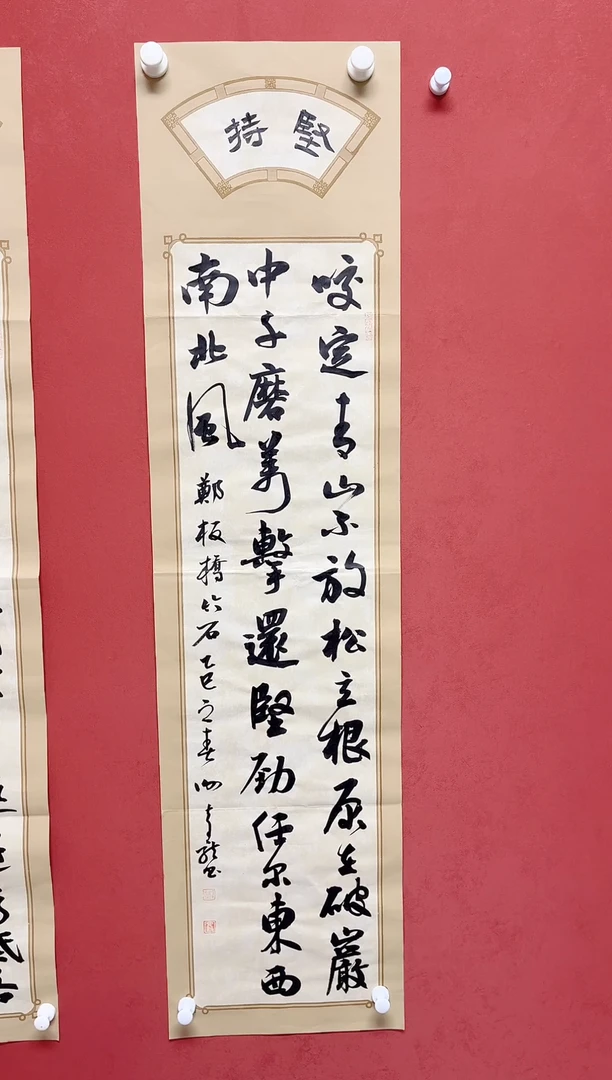 堅持
咬定青山不放松立根原在破巖
中千磨萬擊還堅勁任尔東西
南北風
鄭板橋竹石乙巳之春